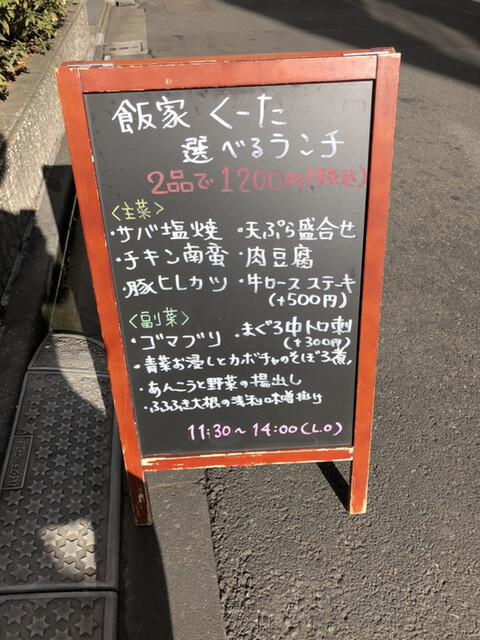 飯家 くーた
選べるランチ
2品で1200円(税込)
<主菜>
・サバ塩焼 ・天ぷら盛合せ
・チキン南蛮 ・肉豆腐
・豚ヒレカツ ・牛ロースステーキ
(+500円)
<副菜>
・ゴマブリ ・まぐろ中トロ刺
(+300円)
・青菜お浸しとカボチャのそぼろ煮
・あんこうと野菜の揚出し
・ふろふき大根の浅利味噌掛け
11:30～14:00(L.O)